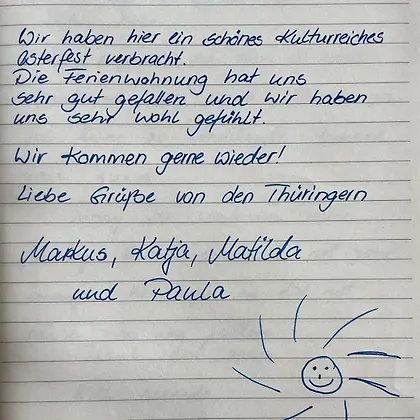 Wir haben hier ein schönes Kulturreiches
Osterfest verbracht.
Die Ferienwohnung hat uns
sehr gut gefallen und wir haben
uns sehr wohl gefühlt.
Wir kommen gerne wieder!
Liebe Grüße von den Thüringern
Markus, Katja, Matilda
und Paula